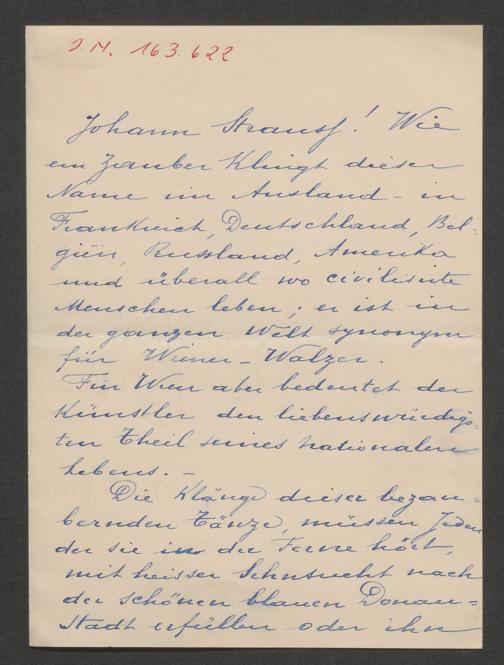 J.N. 163.622
Johann Strauss! Wie
ein Zauber klingt dieser
Name im Ausland - in
Frankreich, Deutschland, Bel=
gien, Russland, Amerika
und überall wo civilisirte
Menschen leben; er ist in
der ganzen Welt synonym
für Wiener-Walzer.
Für Wien aber bedeutet der
Künstler den liebenswürdigs=
ten Theil seines nationalen
Lebens. -
Die Klänge dieser bezau=
bernden Tänze, müssen Jeden
der sie in der Ferne hört,
mit heisser Sehnsucht nach
der schönen blauen Donau=
Stadt erfüllen oder ihn